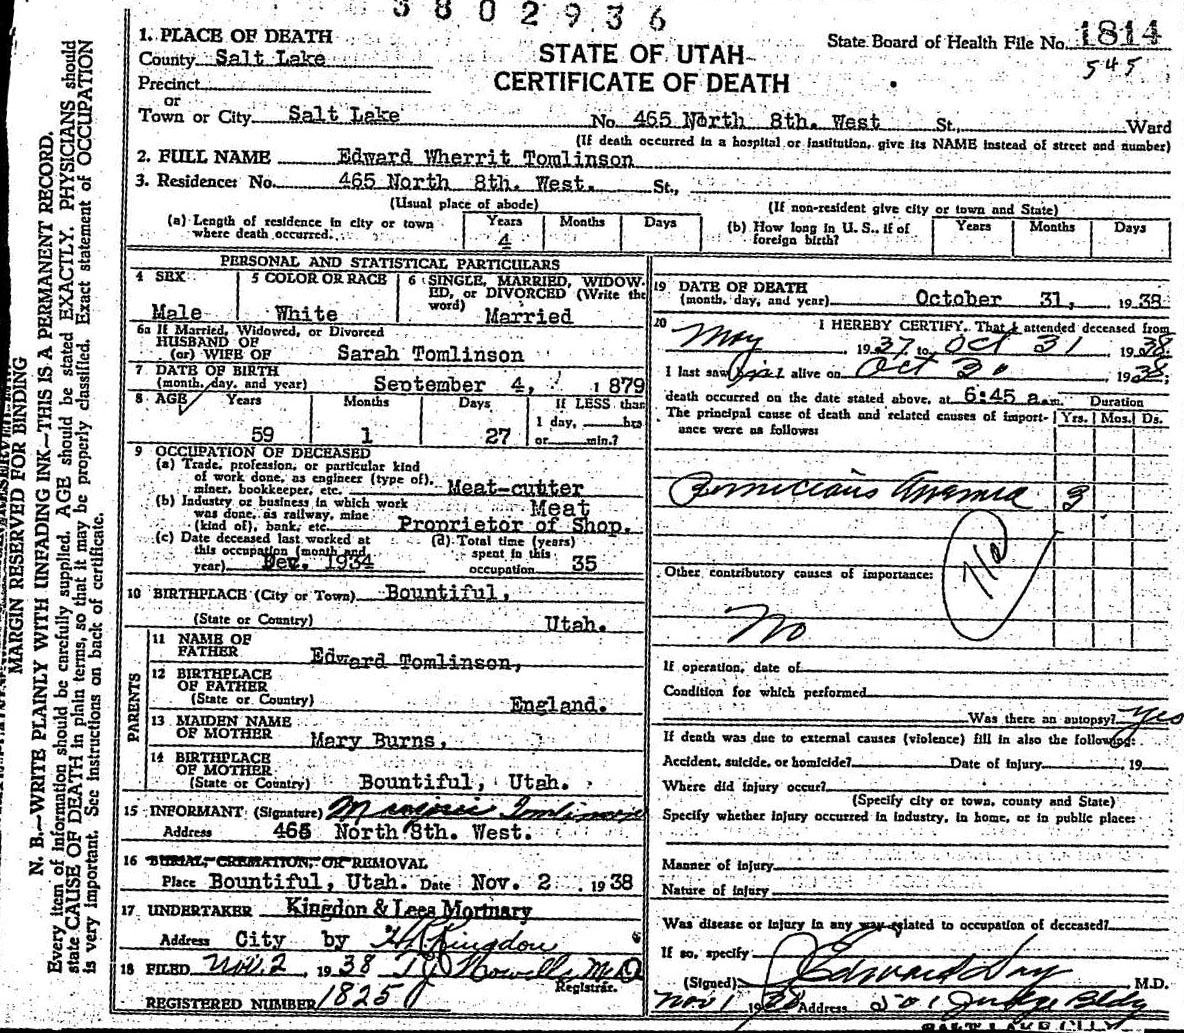 3802936
1. PLACE OF DEATH
County Salt Lake
Precinct
or
Town or City Salt Lake
STATE OF UTAH
CERTIFICATE OF DEATH
State Board of Health File No. 1814
545
No. 465 North 8th. West St., Ward
(If death occurred in a hospital or institution, give its NAME instead of street and number)
2. FULL NAME Edward Wherrit Tomlinson
3. Residence: No. 465 North 8th. West. St.,
(Usual place of abode) (If non-resident give city or town and State)
(a) Length of residence in city or town where death occurred. Years 4 Months Days
(b) How long in U. S., if of foreign birth? Years Months Days
PERSONAL AND STATISTICAL PARTICULARS
4 SEX Male
5 COLOR OR RACE White
6 SINGLE, MARRIED, WIDOWED, or DIVORCED (Write the word) Married
6a If Married, Widowed, or Divorced
HUSBAND OF
(or) WIFE OF Sarah Tomlinson
7 DATE OF BIRTH
(month, day, and year) September 4, 1879
8 AGE Years 59 Months 1 Days 27
If LESS than
1 day, hrs
or min.?
9 OCCUPATION OF DECEASED
(a) Trade, profession, or particular kind
of work done, as engineer (type of),
miner, bookkeeper, etc. Meat-cutter
(b) Industry or business in which work
was done, as railway, mine
(kind of), bank, etc. Meat
Proprietor of Shop.
(c) Date deceased last worked at
this occupation (month and
year) Dec. 1934
(d) Total time (years)
spent in this
occupation 35
10 BIRTHPLACE (City or Town) Bountiful,
(State or Country) Utah.
PARENTS
11 NAME OF
FATHER Edward Tomlinson,
12 BIRTHPLACE
OF FATHER
(State or Country) England.
13 MAIDEN NAME
OF MOTHER Mary Burns,
14 BIRTHPLACE
OF MOTHER
(State or Country) Bountiful, Utah.
15 INFORMANT (Signature) Marjorie Tomlinson
Address 465 North 8th. West.
16 BURIAL, CREMATION, OR REMOVAL
Place Bountiful, Utah. Date Nov. 2 1938
17 UNDERTAKER Kingdon & Lees Mortuary
Address City by H Kingdon
18 FILED Nov. 2, 1938 T J Howells M.D
Registrar.
REGISTERED NUMBER 1825
19 DATE OF DEATH
(month, day, and year) October 31, 1938
20 I HEREBY CERTIFY, That I attended deceased from
May 1937 to Oct 31 1938
I last saw him alive on Oct 30 1938,
death occurred on the date stated above, at 6:45 a.m.
Duration
The principal cause of death and related causes of importance were as follows:
Yrs. Mos. Ds.
Pernicious Anemia 3
Other contributory causes of importance:
No
If operation, date of
Condition for which performed
Was there an autopsy? Yes
If death was due to external causes (violence) fill in also the following:
Accident, suicide, or homicide? Date of injury 19
Where did injury occur?
(Specify city or town, county and State)
Specify whether injury occurred in industry, in home, or in public place:
Manner of injury
Nature of injury
Was disease or injury in any way related to occupation of deceased?
If so, specify
(Signed) Edward Day M.D.
Nov 1 1938 Address 201 Judge Bldg
SALT LAKE CITY
MARGIN RESERVED FOR BINDING
N. B.—WRITE PLAINLY WITH UNFADING INK—THIS IS A PERMANENT RECORD.
Every item of information should be carefully supplied. AGE should be stated EXACTLY. PHYSICIANS should
state CAUSE OF DEATH in plain terms, so that it may be properly classified. Exact statement of OCCUPATION
is very important. See instructions on back of certificate.